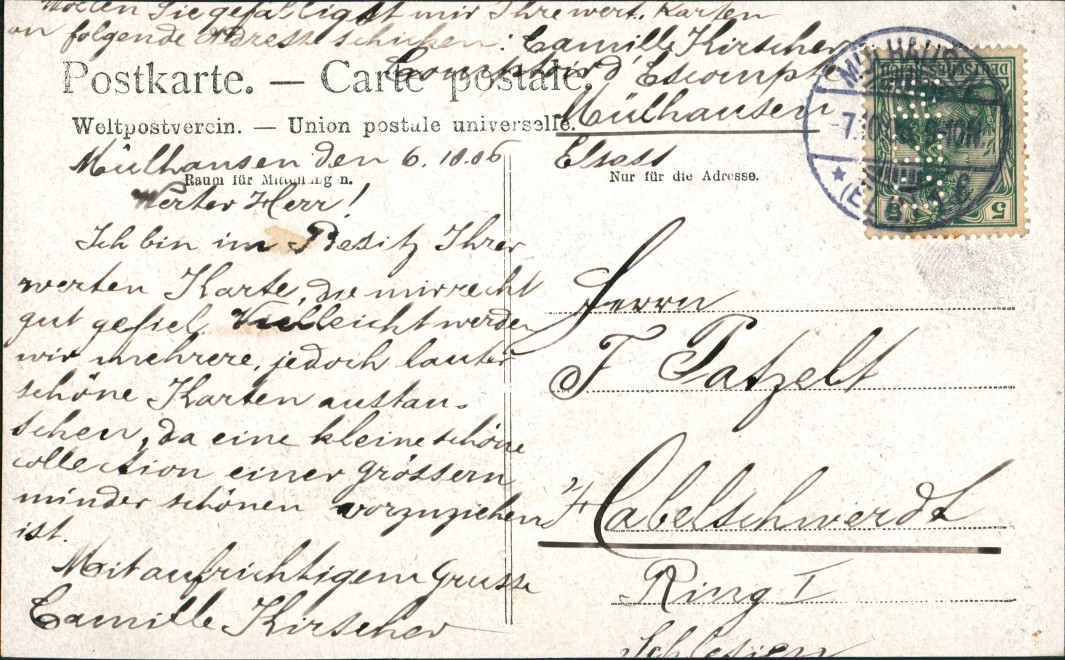 Wollen Sie gefälligst mir Ihre wert. Karten
an folgende Adresse schicken: Camille Kirscher
Comptoir d'Escompte
Mülhausen
Elsass
Postkarte. — Carte postale.
Weltpostverein. — Union postale universelle.
Mülhausen den 6.10.06
Raum für Mitteilungen.
Nur für die Adresse.
Werter Herr!
Ich bin im Besitz Ihrer
werten Karte, die mir recht
gut gefiel. Vielleicht werden
wir mehrere, jedoch lauter
schöne Karten austau-
schen, da eine kleine schöne
collection einer grössern
minder schönen vorzuziehen
ist.
Mit aufrichtigem Grusse
Camille Kirscher
Herrn
F Patzelt
Habelschwerdt
Ring I
Schlesien
MÜLHAUSEN
5